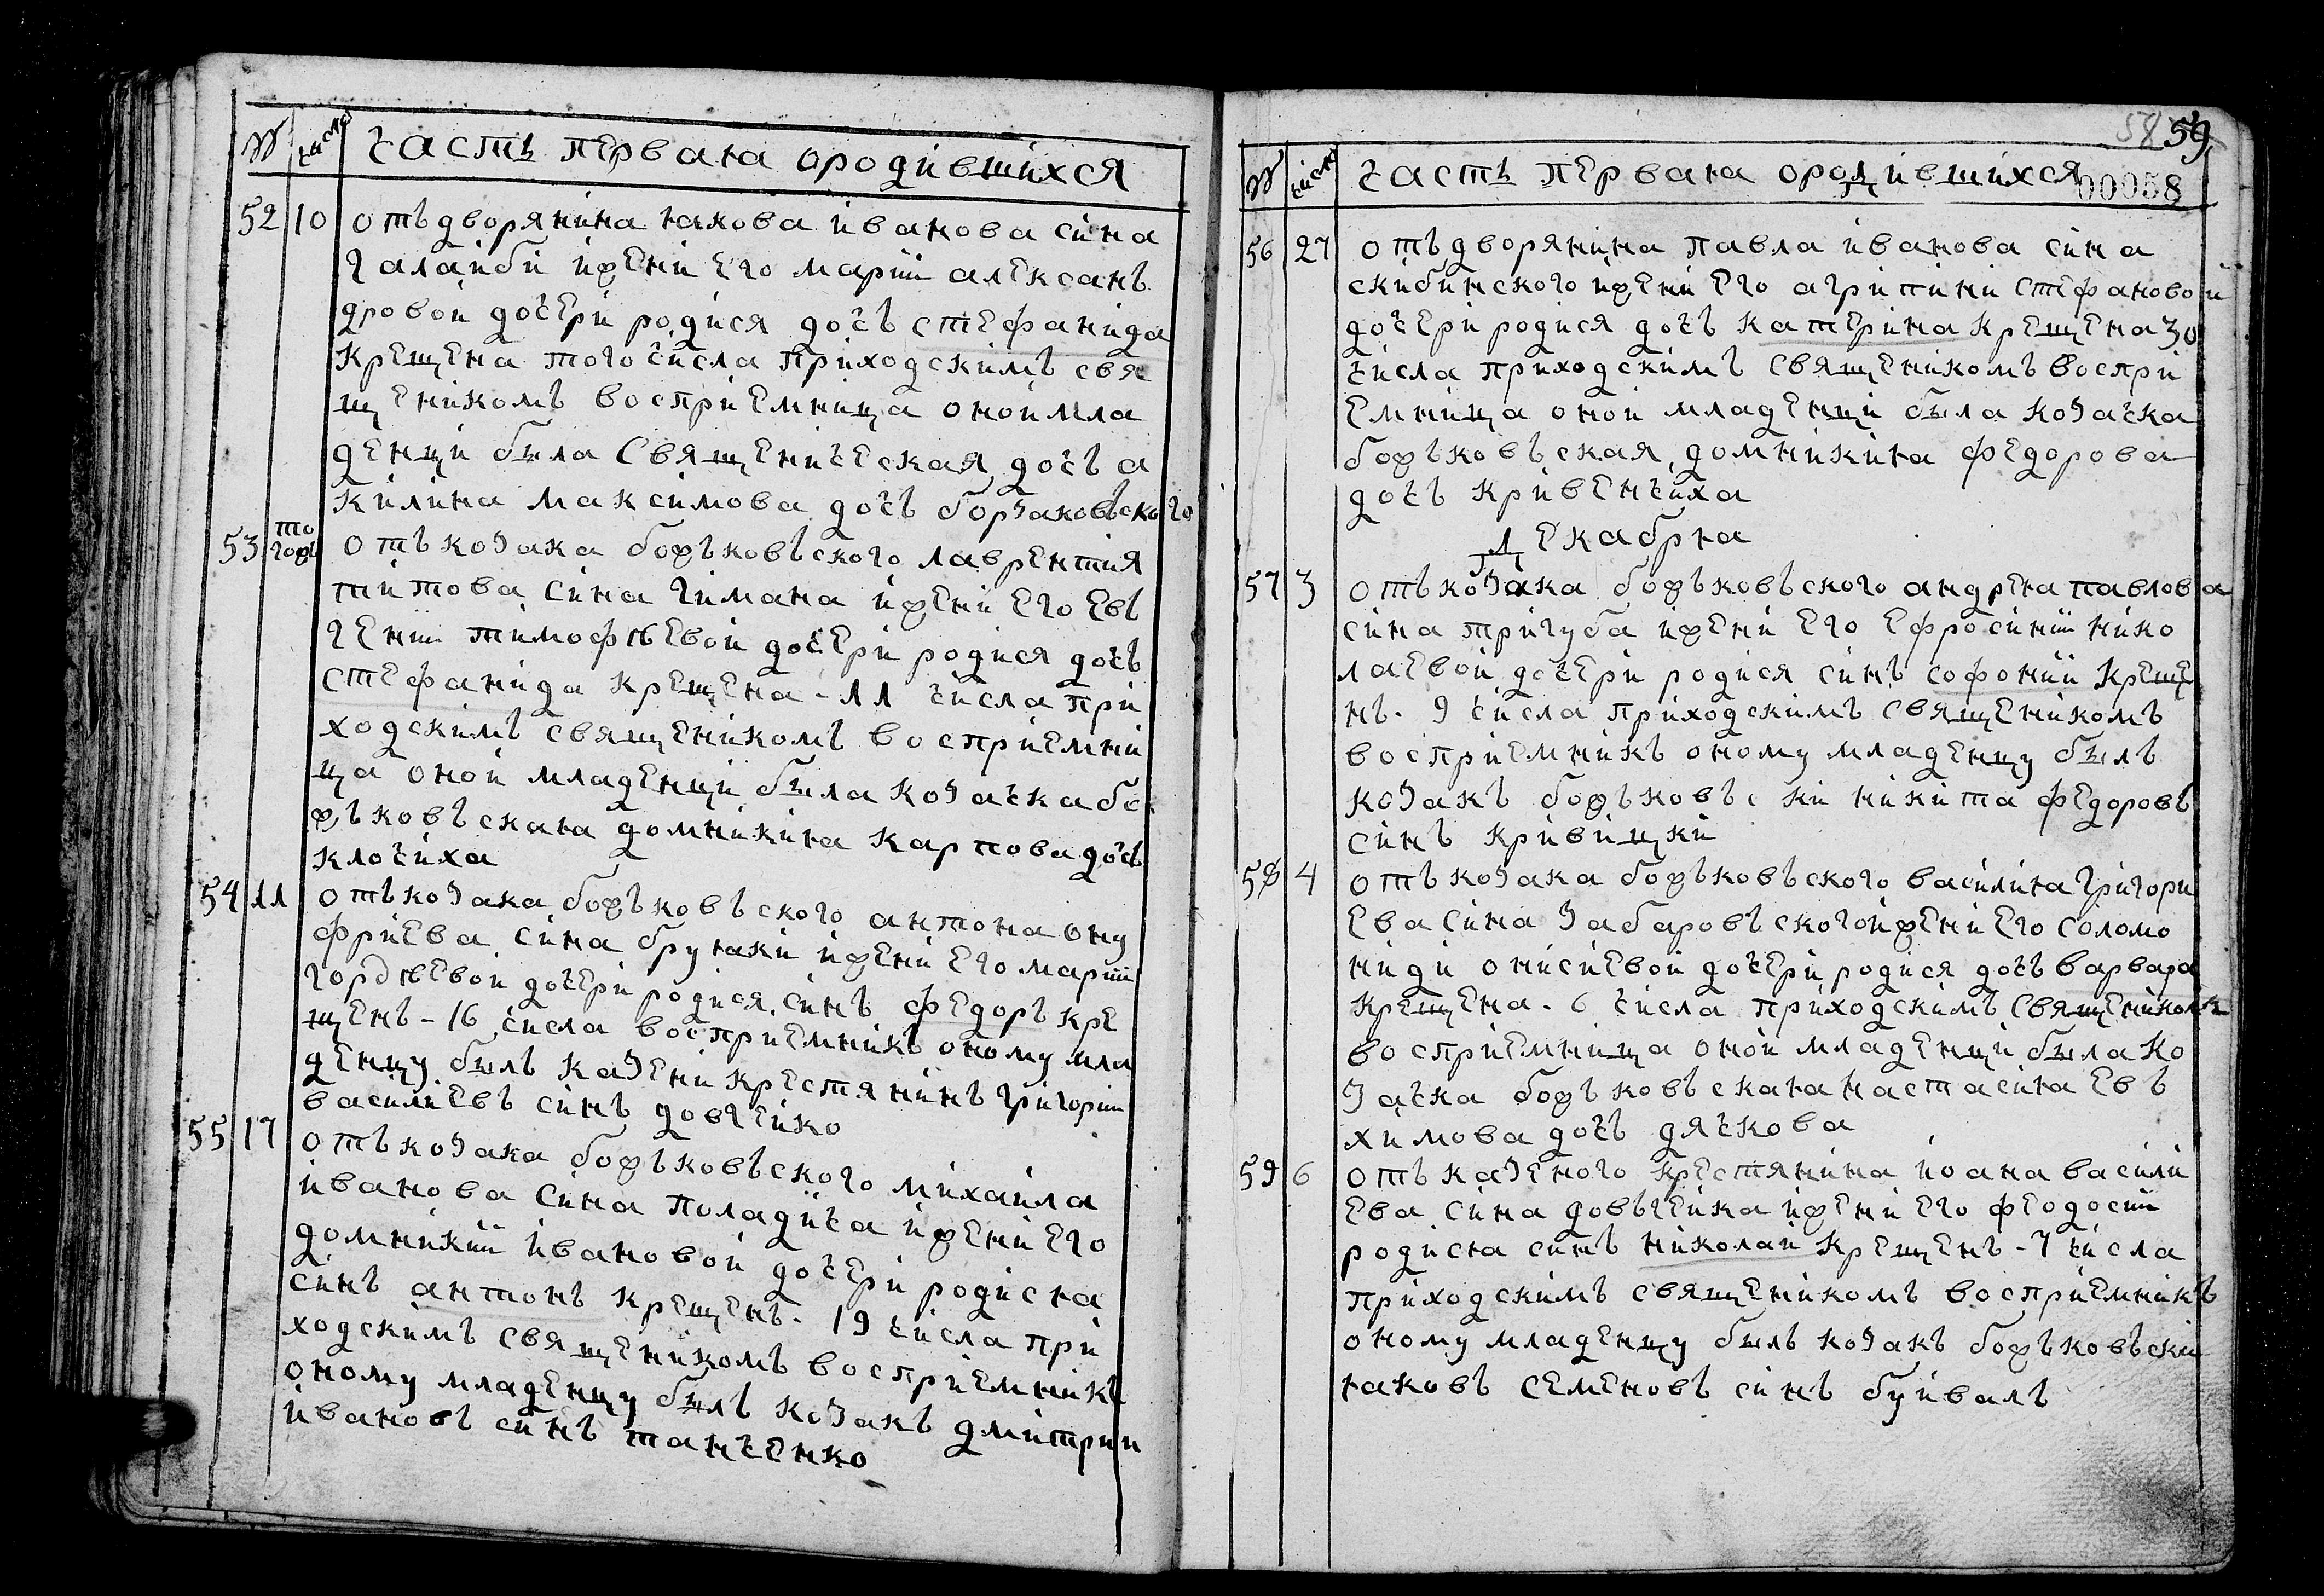 № число часть первая ородившихся
52 10 отъ дворянина якова иванова сина
галайби ижени его марiи алексанъ
дровой дочери родися дочъ стефанида
крещена того числа приходскимъ свя
щеникомъ восприемница оной мла
денци была священическая дочъ а
килина максимова дочъ борзаковъского
53 то гожъ отъ козака божъковъского лаврентия
титова сина гимана ижени его евъ
генiи тимофѣевой дочери родися дочъ
стефанида крещена - 11 числа при
ходскимъ священикомъ восприемни
ца оной младенци была козачка бо
жъковъская домникия карпова дочъ
клочиха
54 11 отъ козака божъковъского антона ону
фриева сина бруяки ижени его марiи
гордѣевой дочери родися синъ федоръ кре
щенъ - 16 числа восприемникъ оному мла
денцу былъ казени крестянинъ григорiи
василиевъ синъ довгейко
55 17 отъ козака божъковъского михаила
иванова сина поладича ижени его
домникiи ивановой дочери родися
синъ антонъ крещенъ - 19 числа при
ходскимъ священикомъ восприемникъ
оному младенцу былъ козакъ дмитрии
ивановъ синъ танченко
58 59
№ число часть первая ородившихся
00058
56 27 отъ дворянина павла иванова сина
скибинского ижени его агрипини стефановой
дочери родися дочъ катерина крещена 30
числа приходскимъ священикомъ воспри
емница оной младенци была козачка
божъковъская домникия федорова
дочъ кривенчиха
декабря
57 3 отъ козака божъковъского андрея павлова
сина тригуба ижени его ефросинiи нико
лаевой дочери родися синъ софонiй креще
нъ - 9 числа приходскимъ священикомъ
восприемникъ оному младенцу былъ
козакъ божъковъски никита федоровъ
синъ кривицки
58 4 отъ козака божъковъского василия григори
ева сина забаровъского ижени его соломо
ниди онисиевой дочери родися дочъ варвара
крещена - 6 числа приходскимъ священикомъ
восприемница оной младенци была ко
зачка божъковъская настасия евъ
химова дочъ дячкова
59 6 отъ казеного крестянина иоана васили
ева сина довъгейка ижени его феодосiи
родися синъ николай крещенъ - 7 числа
приходскимъ священикомъ восприемникъ
оному младенцу былъ козакъ божъковъски
яковъ семеновъ синъ буйвалъ